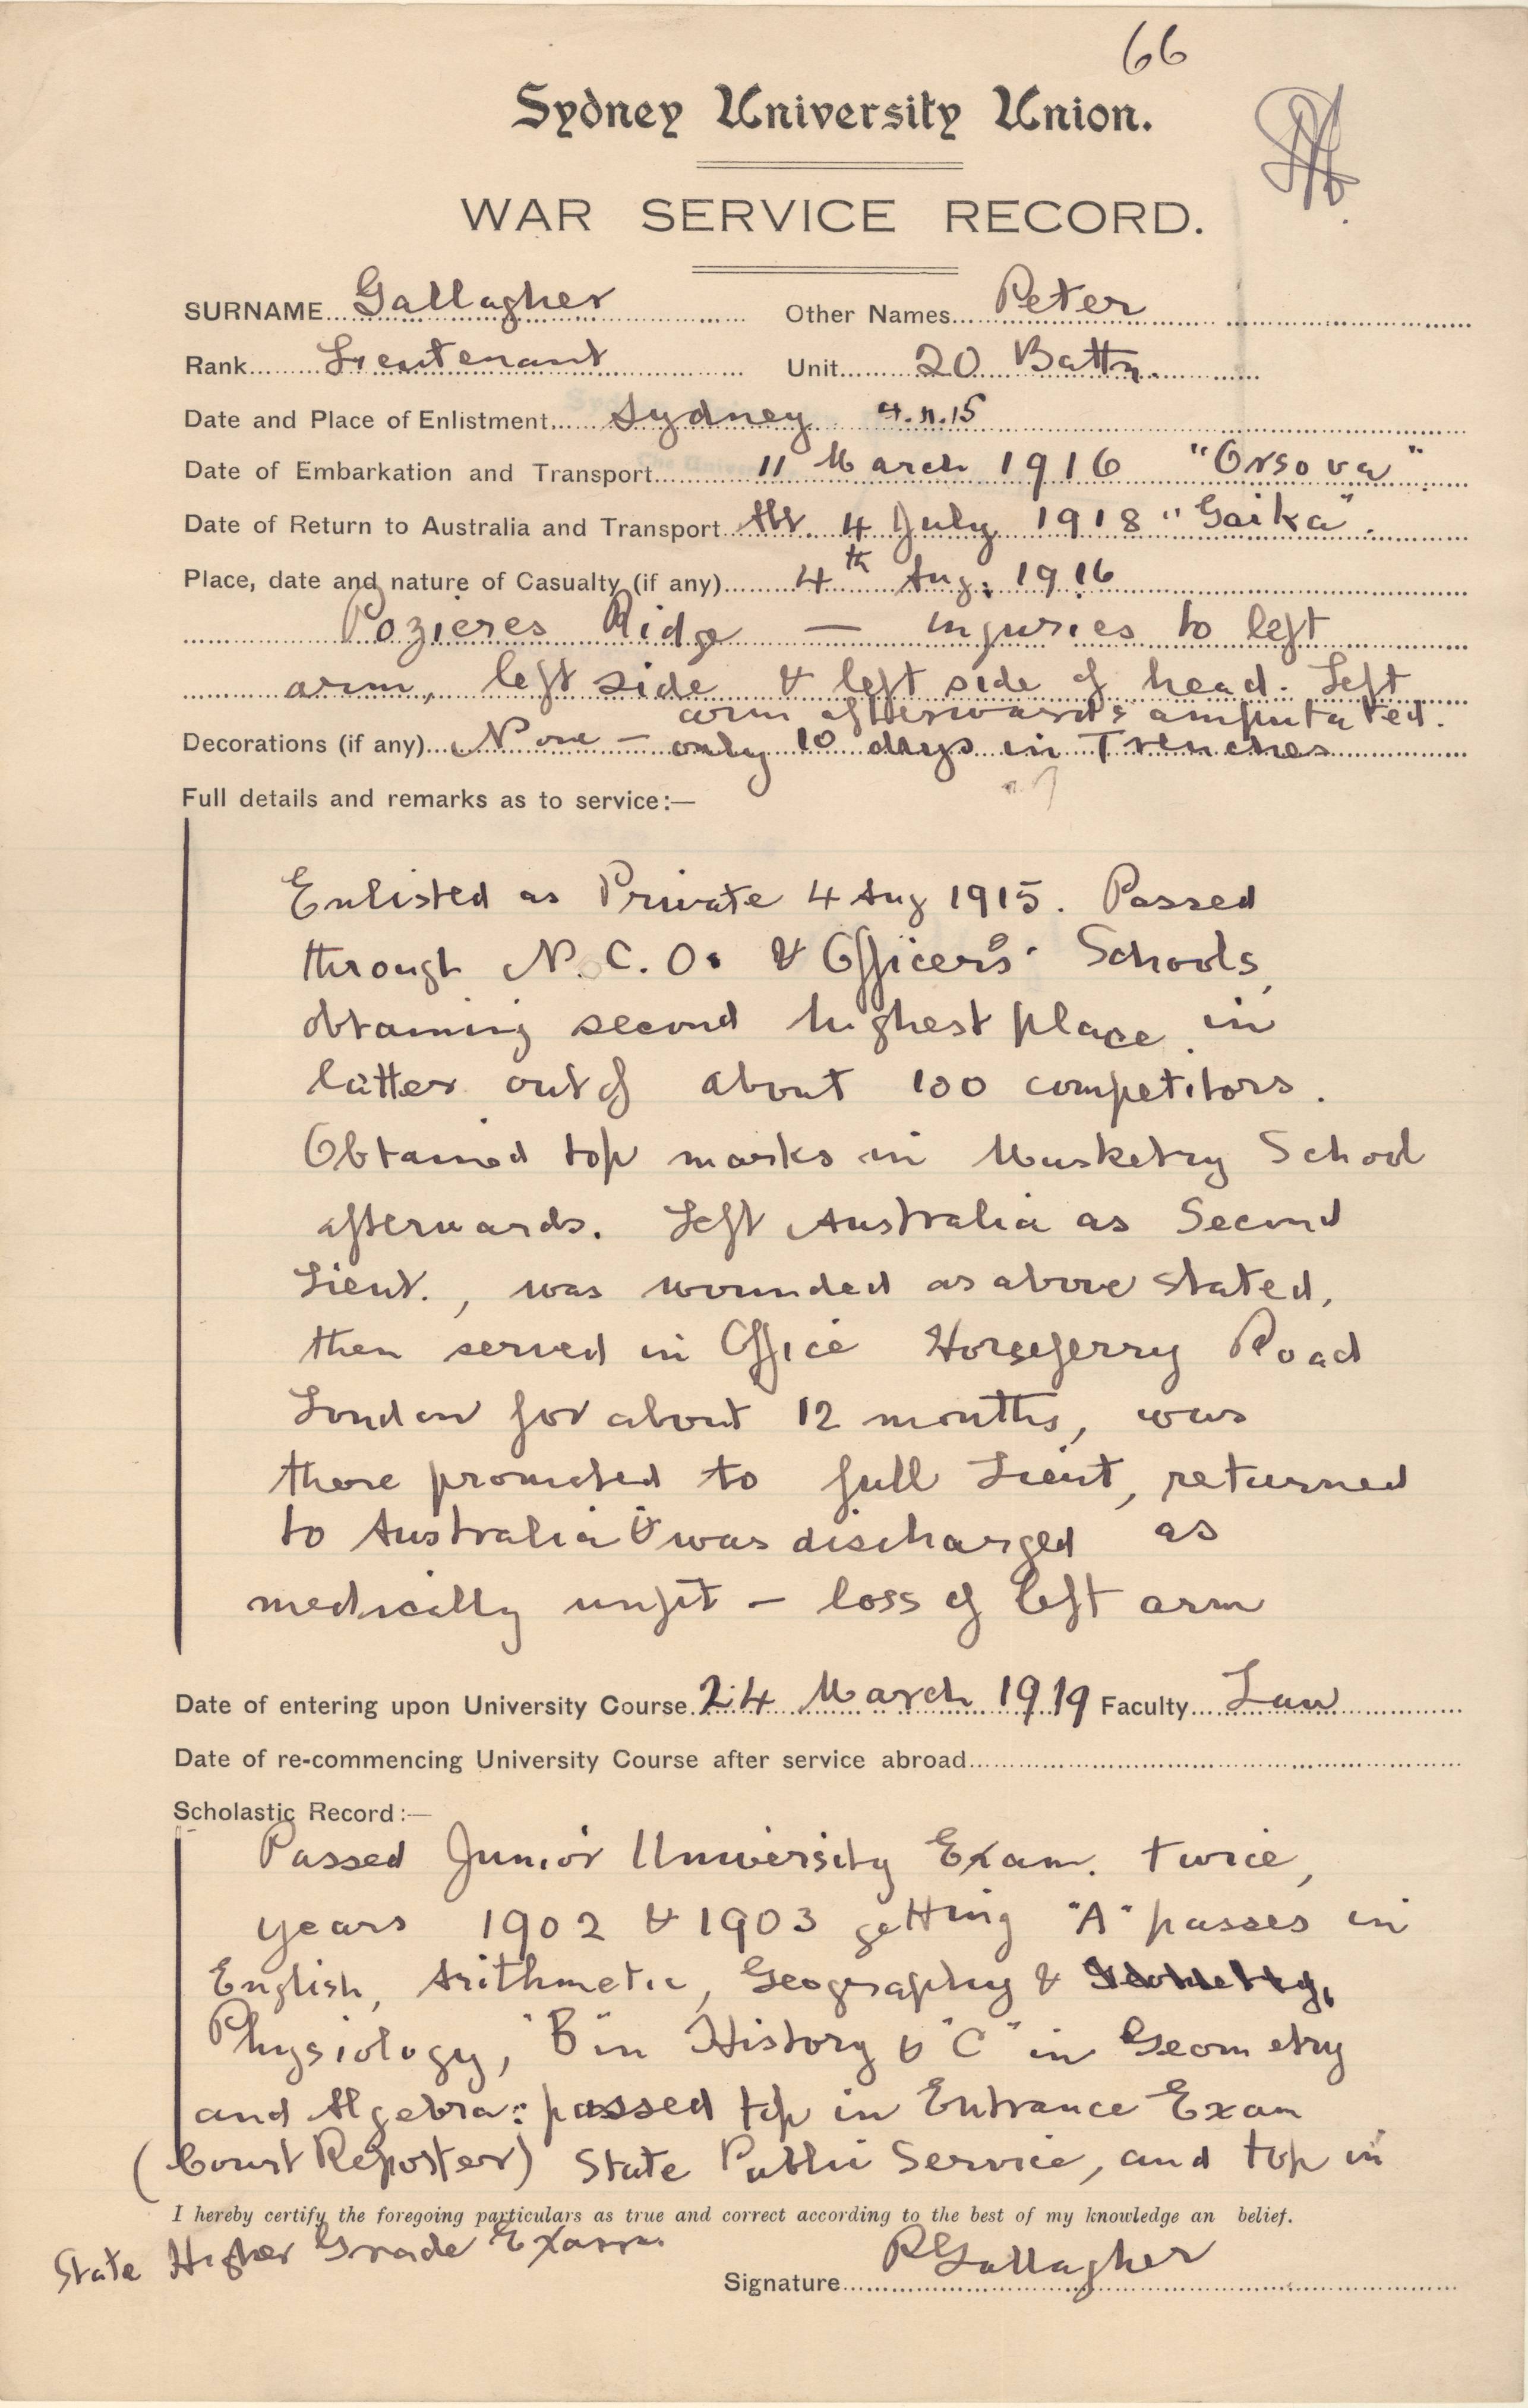 66
Sydney University Union.
WAR SERVICE RECORD.
SURNAME Gallagher Other Names Peter
Rank Lieutenant Unit 20 Battn.
Date and Place of Enlistment Sydney
Date of Embarkation and Transport 11 March 1916 "Orsova"
Date of Return to Australia and Transport 4 July 1918 "Gaika".
Place, date and nature of Casualty (if any) 4th Aug. 1916
Pozieres Ridge — injuries to left
arm, left side & left side of head. Left
arm afterwards amputated.
Decorations (if any) None — only 10 days in Trenches
Full details and remarks as to service:—
Enlisted as Private 4 Aug 1915. Passed
through N.C.Os & Officers' Schools,
obtaining second highest place in
latter out of about 100 competitors.
Obtained top marks in Musketry School
afterwards. Left Australia as Second
Lieut., was wounded as above stated,
then served in Office Horseferry Road
London for about 12 months, was
there promoted to full Lieut, returned
to Australia & was discharged as
medically unfit — loss of left arm
Date of entering upon University Course 24 March 1919 Faculty Law
Date of re-commencing University Course after service abroad
Scholastic Record:—
Passed Junior University Exam. twice,
years 1902 & 1903 getting "A" passes in
English, Arithmetic, Geography &
Physiology, "B" in History & "C" in Geometry
and Algebra: passed top in Entrance Exam
(Court Reporter) State Public Service, and top in
I hereby certify the foregoing particulars as true and correct according to the best of my knowledge an belief.
State Higher Grade Exam.
Signature PGallagher